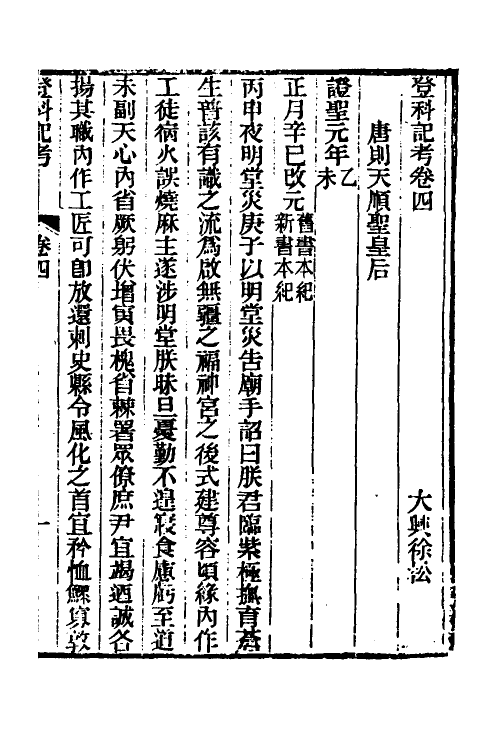 登科記考卷四
大興徐松
唐則天順聖皇后
證聖元年乙未
正月辛巳改元舊書本紀新書本紀
丙申夜明堂災庚子以明堂災告廟手詔曰朕君臨紫極撫育蒼
生普該有識之流為啟無疆之福神宮之後式建尊容頃緣內作
工徒痏火誤燒麻主遂涉明堂朕昧旦憂勤不遑寢食慮虧至道
未副天心內省厥躬伏增寅畏槐省棘署眾僚庶尹宜竭迺誠各
揚其職內作工匠可即放還刺史縣令風化之首宜矜恤鰥寡敦
登科記考
卷四
一